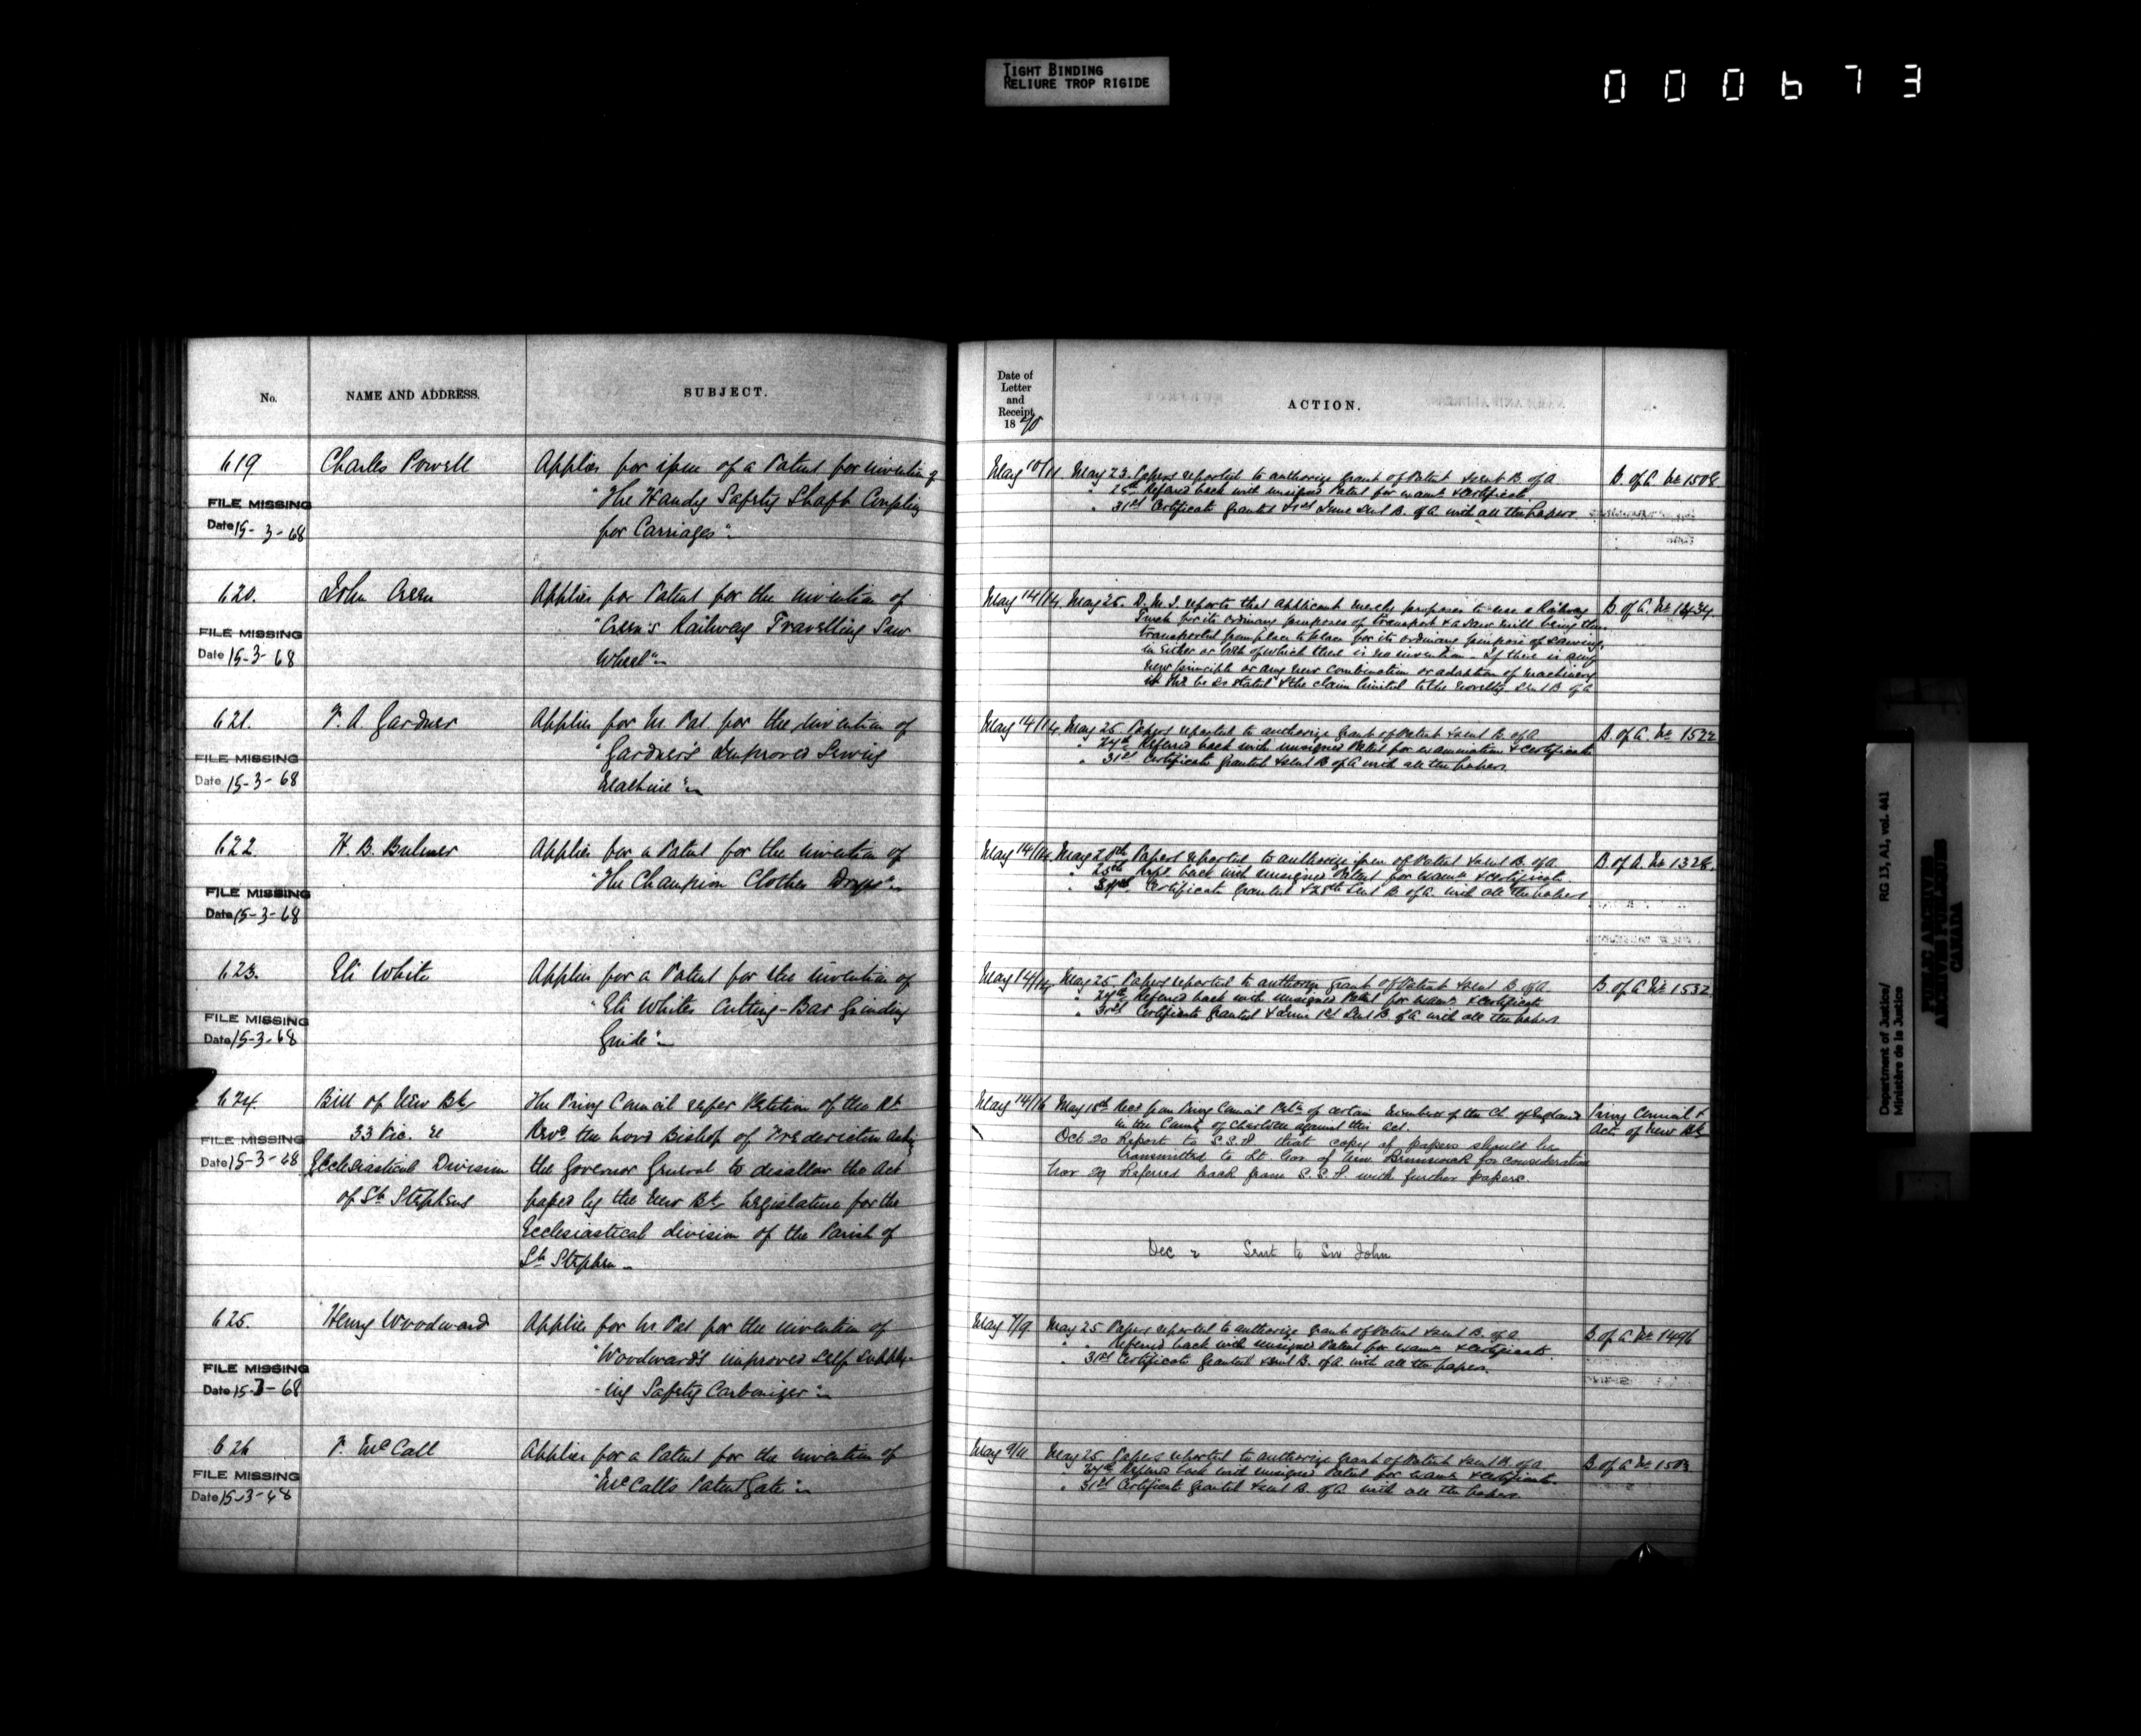 TIGHT BINDING
RELIURE TROP RIGIDE
000673
No.
NAME AND ADDRESS.
SUBJECT.
619
Charles Powell
Applies for issue of a Patent for invention of
"The Handy Safety Shaft Coupling
for Carriages".
FILE MISSING
Date 15-3-68
620.
John Creen
Applies for Patent for the invention of
"Creen's Railway Travelling Saw
Wheel"
FILE MISSING
Date 15-3-68
621.
F. A. Gardner
Applies for Lrs Pat. for the invention of
"Gardner's Improved Sewing
Machine"
FILE MISSING
Date 15-3-68
622
H. B. Bulmer
Applies for a Patent for the invention of
"The Champion Clothes Dryer"
FILE MISSING
Date 15-3-68
623.
Eli White
Applies for a Patent for the invention of
"Eli Whites Cutting-Bar Grinding
Guide".
FILE MISSING
Date 15-3-68
624.
Bill of New Bk
33 Vic. c
Ecclesiastical Division
of St. Stephens
The Privy Council refer Petition of the Rt
Revd. the Lord Bishop of Fredericton asking
the Governor General to disallow the Act
passed by the New Bk. Legislature for the
Ecclesiastical division of the Parish of
St. Stephen
FILE MISSING
Date 15-3-68
625.
Henry Woodward
Applies for Lrs Pat for the invention of
"Woodward's improved self supply-
-ing Safety Carbonizer"
FILE MISSING
Date 15-3-68
626
F. McCall
Applies for a Patent for the invention of
"McCalls Patent Gate"
FILE MISSING
Date 15-3-68
Date of
Letter
and
Receipt,
1870
ACTION.
May 10/11. May 23. Papers reported to authorize grant of Patent & sent B. of A
" 25th Referred back with unsigned Patent for exam & certificate
" 31st Certificate granted & 1st June sent B. of A. with all the papers
B. of A. No 1508
May 14/14. May 25. D.M.J. reports that applicant merely proposes to use a Railway
Truck for its ordinary purposes of transport & a saw mill being then
transported from place to place for its ordinary purpose of sawing,
in either or both of which there is no invention. If there is any
new principle or any new combination or adaption of machinery
it shd be so stated & the claim limited to the novelty. Sent B. of A
B. of A. No 1434.
May 14/14. May 25. Papers reported to authorize grant of Patent & sent B. of A
" 27th Referred back with unsigned Patent for examination & certificate
" 31st Certificate granted & sent B of A with all the papers
B. of A. No 1522
May 14/14. May 20th Papers reported to authorize issue of Patent & sent B. of A
" 25th Refd. back with unsigned Patent for exam & certificate
Certificate granted & 28th sent B. of A. with all the papers
B. of A. No 1328.
May 14/14 May 25. Papers reported to authorize grant of Patent & sent B. of A
" 27th Referred back with unsigned Patent for exam & certificate
" 31st Certificate granted & June 1st sent B. of A. with all the papers
B. of A No 1532
May 14/16 May 18th Recd from Privy Council Petn of certain members of the Ch. of England
in the County of Charlotte against this Act.
Oct 20 Report to S.S.P. that copy of papers should be
transmitted to Lt Gov of New Brunswick for consideration
Nov 29 Referred back from S.S.P. with further papers.
Dec 2 Sent to Sir John
Privy Council &
Act. of New Bk
May 7/9 May 25 Papers reported to authorize grant of Patent & sent B. of A
" " Referred back with unsigned Patent for exam & certificate
" 31st Certificate granted & sent B. of A. with all the papers.
B. of A No 1496
May 9/11 May 25. Papers reported to authorize grant of Patent & sent B. of A
27th Referred back with unsigned Patent for exam & certificate.
" 31st Certificate granted & sent B. of A with all the papers.
B. of A No 1503
Department of Justice/
Ministère de la Justice
RG 13, A1, vol. 441
PUBLIC ARCHIVES
ARCHIVES PUBLIQUES
CANADA